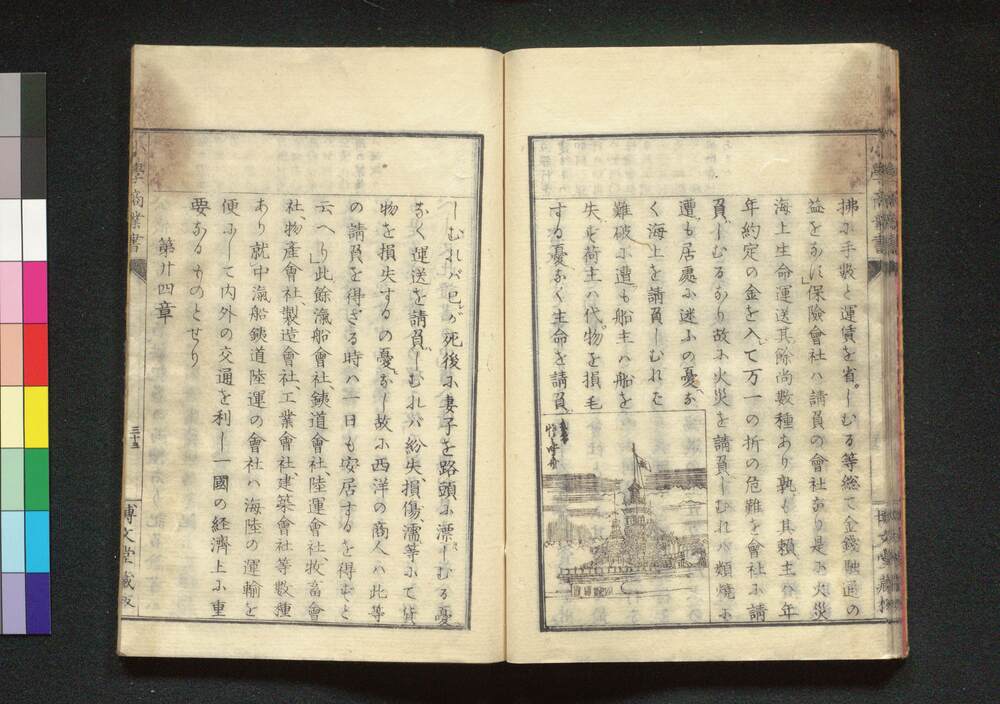 拂ふ手數と運賃を省しむる等総て金錢融通の
益をなす」保險會社ハ請負の會社なり是ふ火災
海上生命運送其餘尚數種あり孰も其賴主ハ年
年約定の金を入て万一の折の危難を會社ふ請
負しむるなり故ふ火災を請負しむれハ類焼ふ
遭も居處ふ迷ふの憂な
く海上を請負しむれた
難破ふ遭も船主ハ船を
失ハず荷主ハ代物を損毛
する憂なく生命を請負
しむれバ己が死後ふ妻子を路頭ふ漂しむる憂
なく運送を請負しむれハ紛失、損傷、濡等ふて貨
物を損失するの憂なし故ふ西洋の商人ハ此等
の請負を得ざる時ハ一日も安居するを得ずと
云へり」此餘滊船會社、鐵道會社、陸運會社、牧畜會
社、物産會社、製造會社、工業會社、建築會社等數種
あり就中滊船鐵道陸運の會社ハ海陸の運輸を
便ふして内外の交通を利し一國の経濟上ふ重
要なるものとせり
第廿四章
學商業書
三十五
博文堂藏版